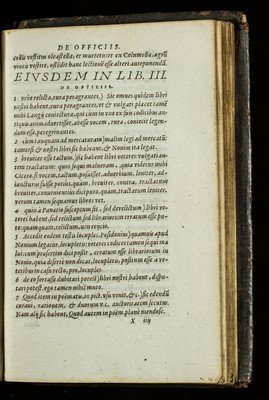 DE OFFICIIS.
EIVSDEM IN LIB. III.
DE OFFICIIS.
1 vrbe relicta, rura peragrantes.) Sic omnes quidem libri
nostri habent, rura peragrantes, et vulgati placet tamē
mihi Langij coniectura, qui cum in vno ex suis codicibus an-
tiquis animaduertisset, abesse vocem, rura, coniecit legen-
dum esse, peregrinantes.
2 cum tanquam ad mercaturam) malim legi ad mercatū:
tametsi & nostri libri sic habeant, & Nonius ita legat.
3 breuiter esse tactum,) sic habent libri veteres vulgati au-
tem tractatum: quos sequi
Cicero, si vocem, tactum, posuisset, aduerbium, leuiter, ad-
iuncturus fuisse potius, quam, breuiter. contra, tractatum
breuiter, conuenientius dici puto, quam, tractatum leuiter.
verum tamen sequamur libros vet.
4 quin a Panætio susceptum sit, sed derelictum) libri ve-
teres habent, sed relictum sed librariorum erratum esse pu-
to: quamquam, relictum, non reijcio.
5 Accedit eodem testis locuples, Posidonius) quamuis apud
Nonium legatur, locupletis: veteres codices tamen sequi ma-
lui: cum præsertim dici possit, erratum esse librariorum in
Nonio. quia diserte non dicat, locupletis, positum esse a ve-
teribus in casu recto, pro, locuples.
6 de eo fortasse dubitari potest) libri nostri habent, dispu-
tari potest. ego tamen nihil muto.
7 Quod item in poëmatis, in picturis vsu venit, & c.) sic edendū
curaui, rationem, & duorum v.c. auctoritatem secutus.
Nam alij sic habent, Quod autem in poëm. plane mendose.
X iiij